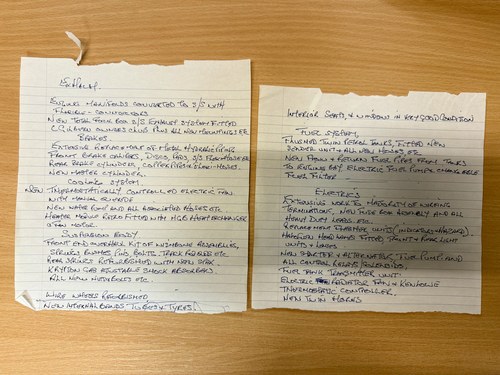 Exhaust.
Engine manifolds converted to S/S with
Flexible - connectors
New Total four box S/S exhaust system fitted
owners club plus all new mountings etc
Brakes.
Extensive replacement of metal hydraulic piping
Front brake calipers, discs, pads S/S flexible hoses
Rear brake cylinder, copper pipes S/S flexi-hoses.
New master cylinder.
Cooling system
New thermostatically controlled electric fan
with manual override
New water pump and all associated hoses etc
Heater module retro fitted with high heat exchanger
& fan motor.
Suspension & body
Front end overhaul kit of wishbone assemblies,
springs bushes pins bolts track rod ends etc
Rear springs refurbished with new spax
Krypton gas adjustable shock absorbers
All new nuts bolts etc
Wire wheels refurbished
New internal bands tubes & tyres
Interior seats, & windows in very good condition
Fuel system,
Flushed twin petrol tanks, fitted new
sender unit & all new hoses etc
New main & returns fuel pipes from tanks
to engine bay electric fuel pumps changeable
fuel filter
Electrics
Extensive work to majority of wiring
terminations, new fuse box assembly and all
heavy duty leads etc.
Replacement flasher units (indicators & hazard)
Halogen head lamps fitted, front & rear light
units & lamps
New starter & alternator, fuel pump and
all control relays/solenoids.
Fuel tank transmitter unit.
Electric radiator fan & Kenlowe
thermostatic controller.
New twin horns